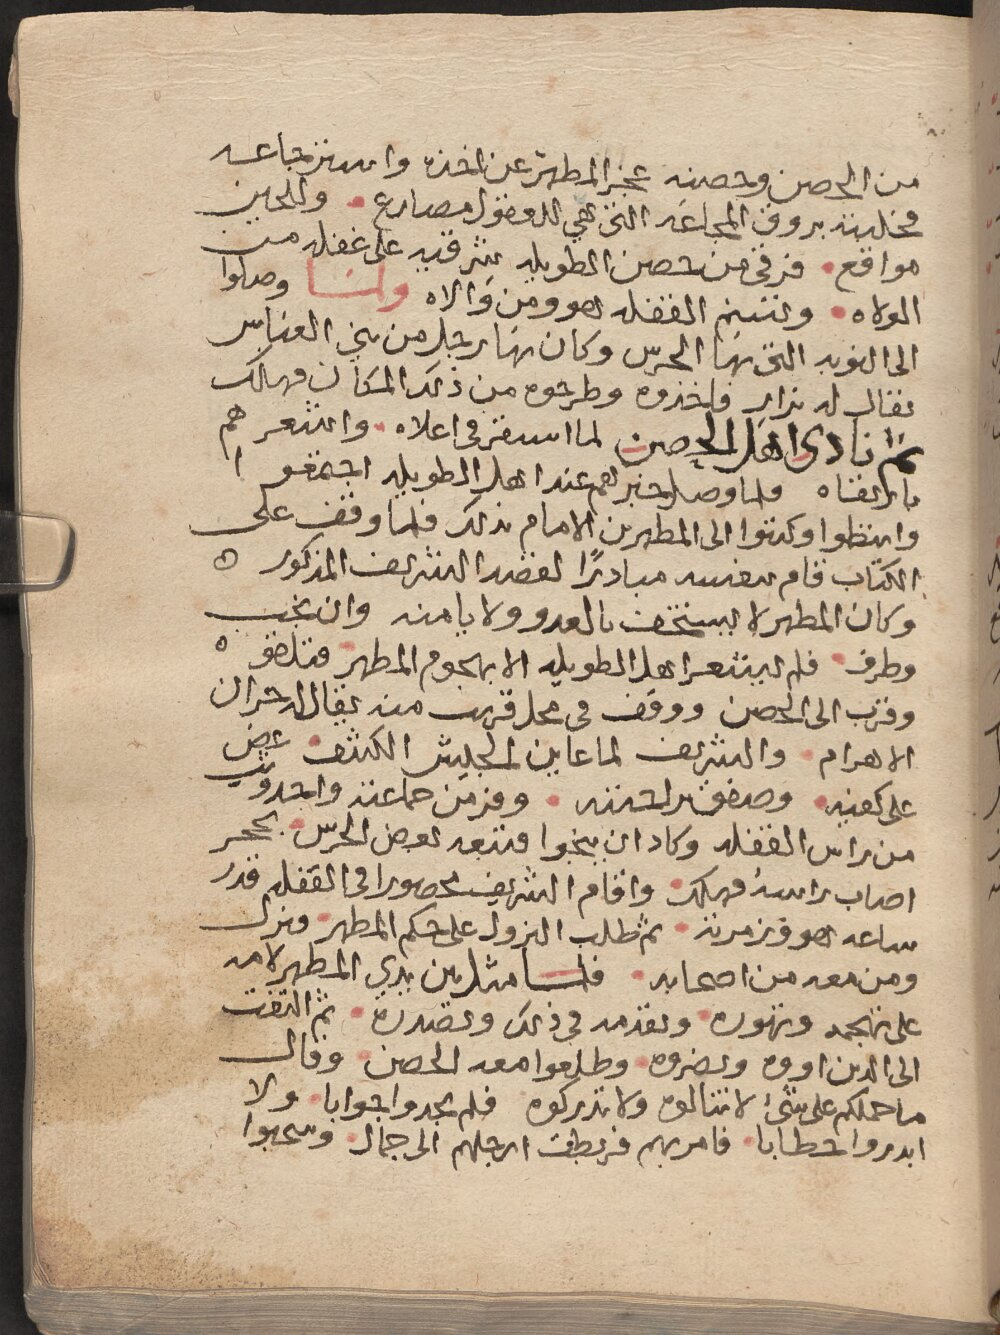 من الحصن وحصنه عجز المطهر عن اخذه واستنزجاعه
فخلبته بروق المجاعه التي هي للعقول مصارع • وللحين
مواقع • فرقى من حصن الطويله شرقيه على غفله من
الولاه • وتسنم القفله هو ومن والاه ولما وصلوا
الى النوبه التي بها الحرس وكان بها رجل من بني العباس
يقال له نزار فاخذوه وطرحوه من ذلك المكان فهلك
ثم نادى اهل الحصن لما استقر في اعلاه • واشعرهم
بارتقاه فلما وصل خبرهم عند اهل الطويله اجتمعوا
وكتبوا الى المطهر بن الامام بذلك فلما وقف على
الكتاب قام بنفسه مبادرًا لقصد الشريف المذكور ه
وكان المطهر لا يستخف بالعدو ولا يامنه وان
وطرف • فلم يشعر اهل الطويله الا بهجوم المطهر • فتلقوه
وقرب الى الحصن ووقف في محل قريب منه يقال له حزان
الاهرام • والشريف لما عاين الجيش الكثف • عض
على كفيه • وصفق براحتيه • وفر من جماعته واحد
من راس القفله وكاد ان ينجوا فتبعه بعض الحرس • بحجر
اصاب راسه فهلك • واقام الشريف محصورا في القفله قدر
ساعه هو وزمرته • ثم طلب النزول على حكم المطهر • ونزل
ومن معه من اصحابه • فلما مثل بين يدي المطهر لامه
على تهجمه وتهوره • وتقدمه في ذلك وتصدره • ثم التفت
الى الذين اووه ونصروه • وطلعوا معه الحصن • وقال
ما حملكم على شئ لا تنالوه ولا تدركوه فلم يجدوا جوابا • ولا
ابدروا خطابا • فامر بهم فربطت ارجلهم الى جمال • وسحبوا